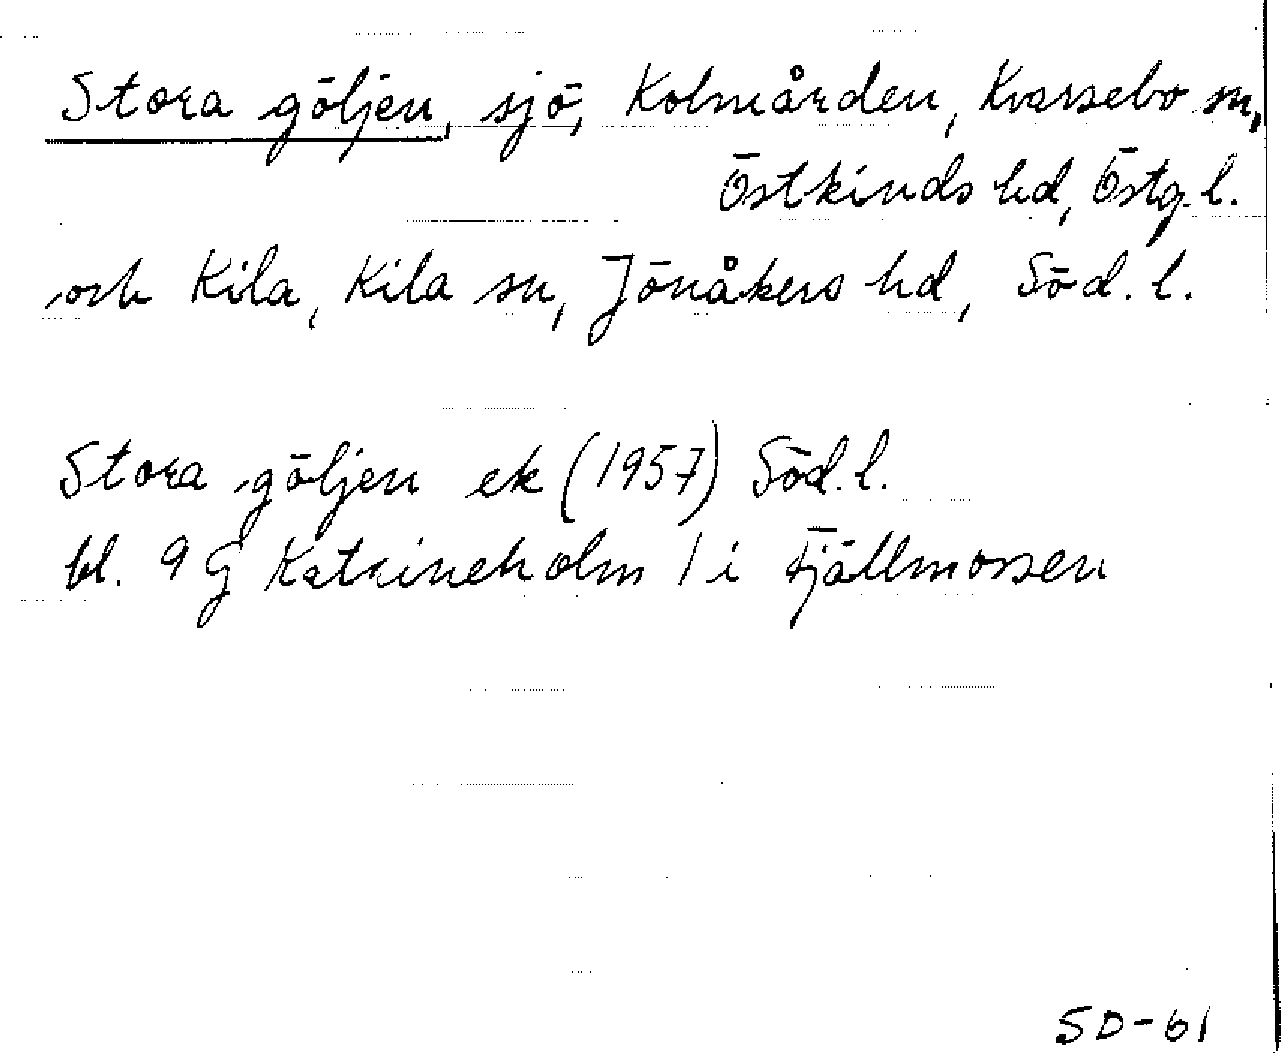 Stora göljen, sjö, Kolmården, Kvarsebo sn,
Östkinds hd, Östg. l.
och Kila, Kila sn, Jönåkers hd, Söd. l.
Stora göljen ek (1957) Söd. l.
bl. 9 G Katrineholm 1 i Fjällmossen
SD-61